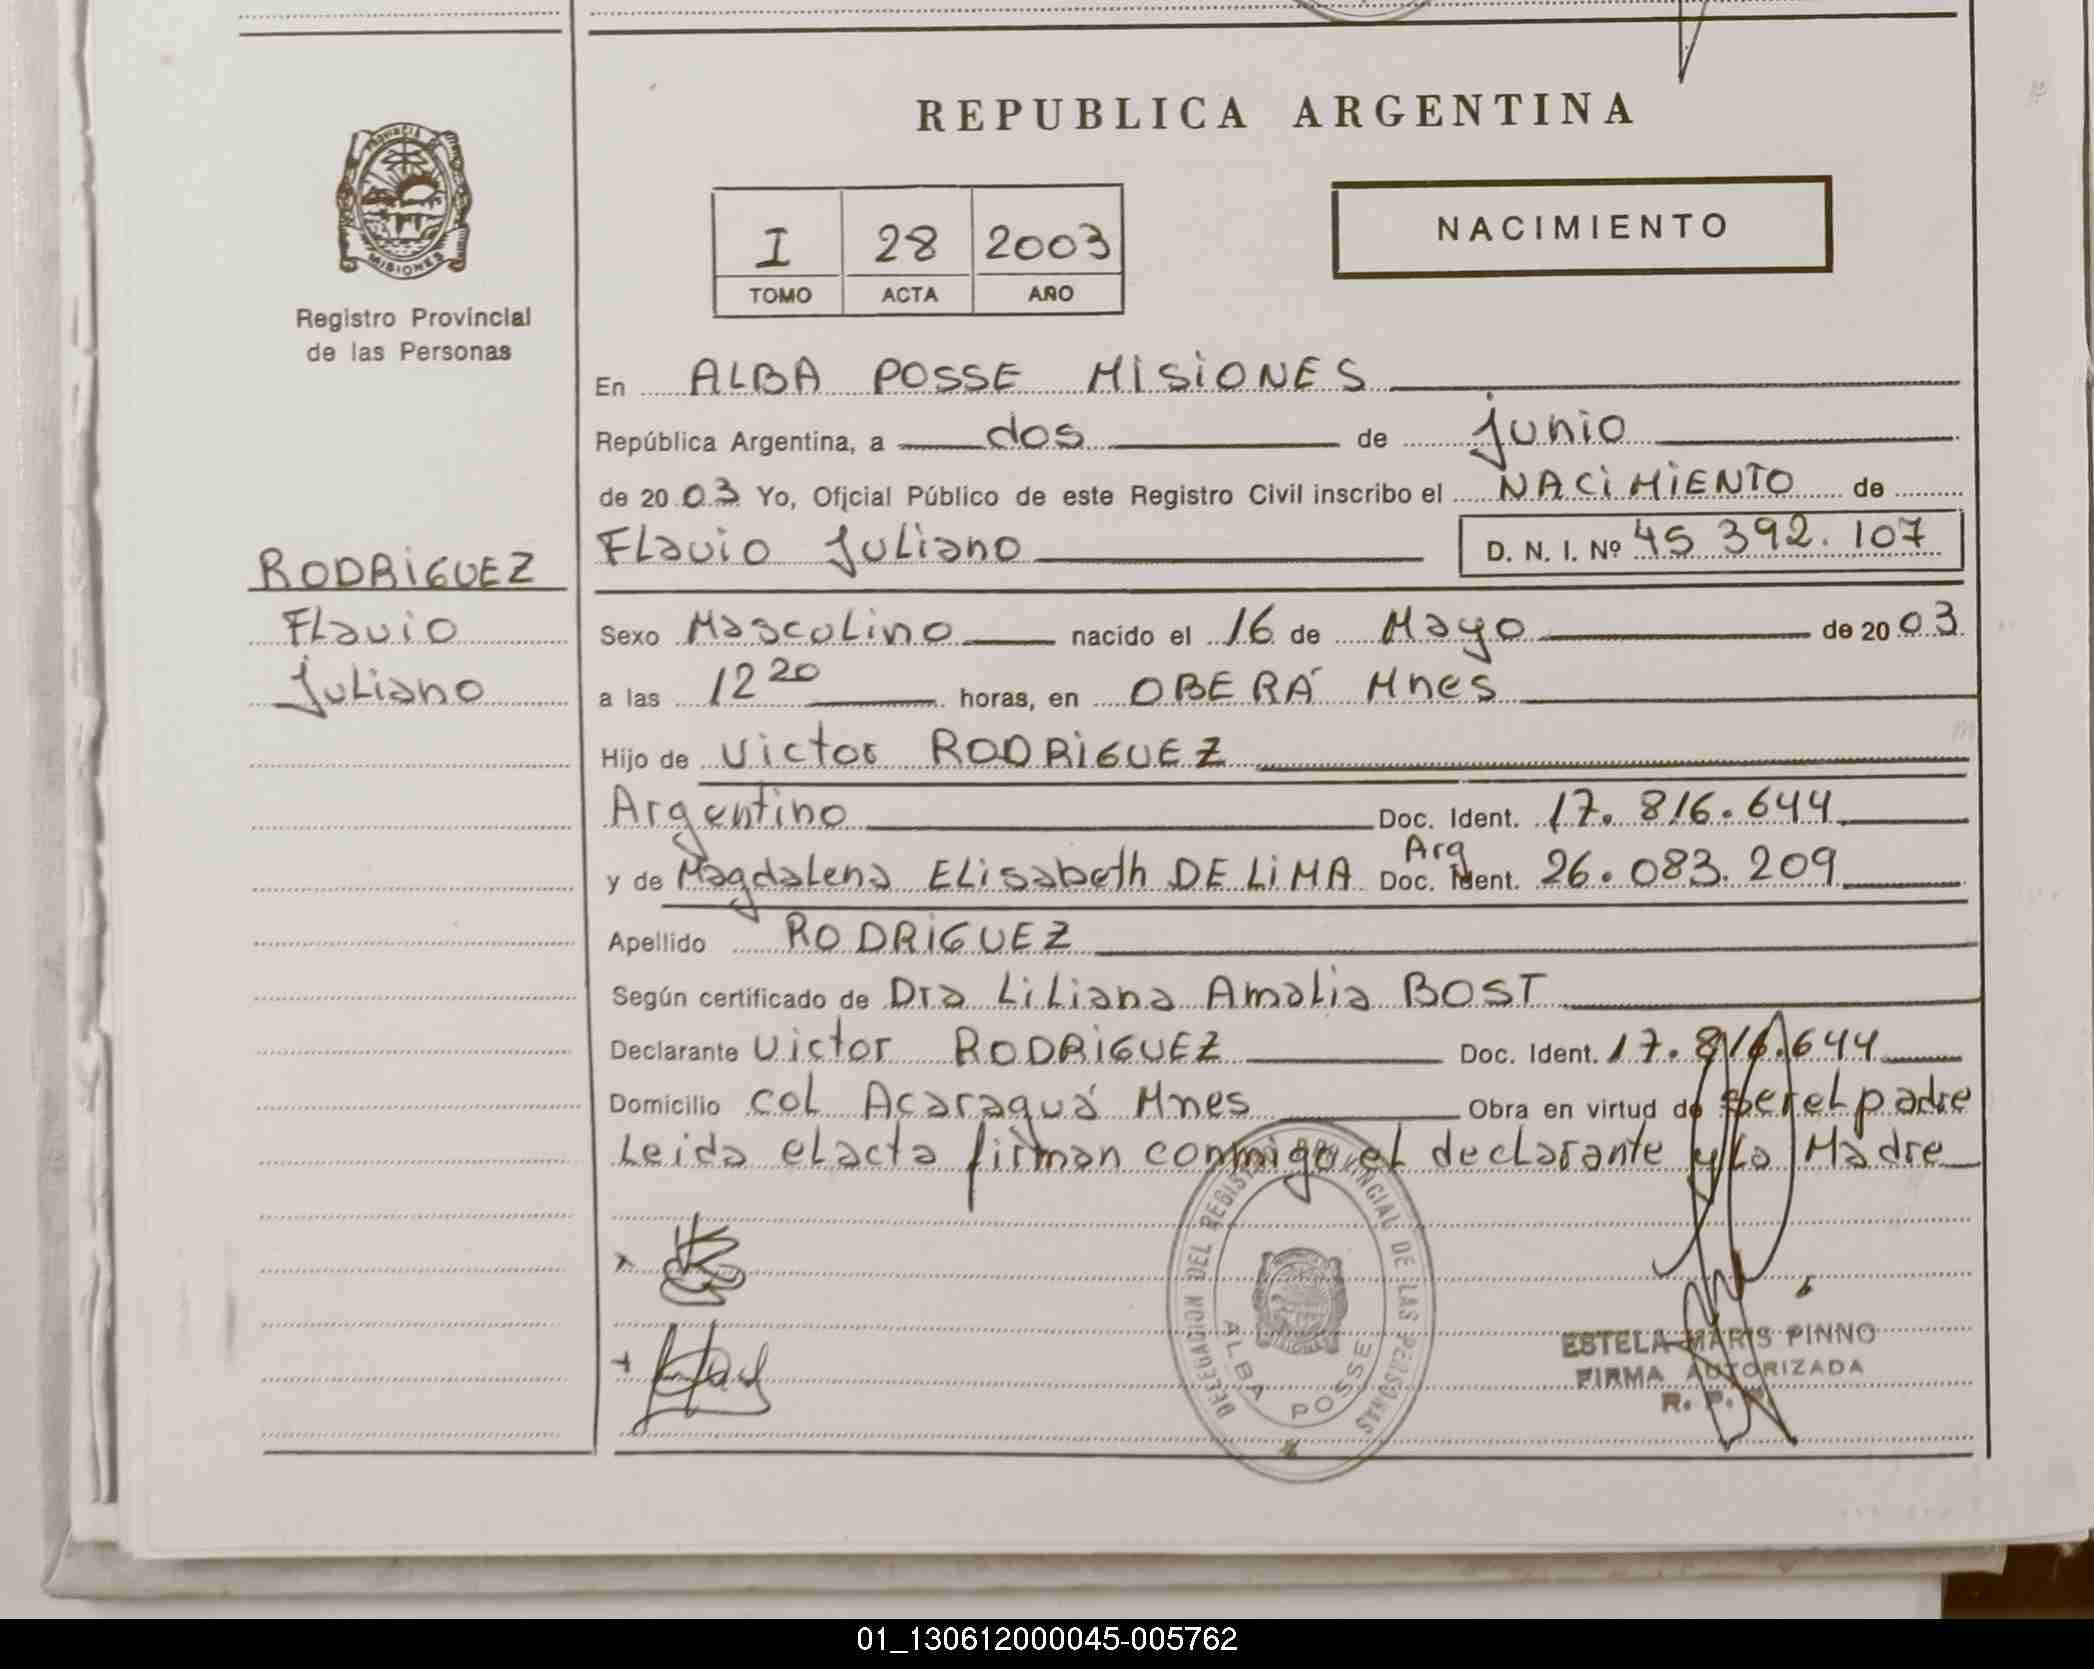 REPUBLICA ARGENTINA
PROVINCIA DE MISIONES
Registro Provincial
de las Personas
I 28 2003
TOMO ACTA AÑO
NACIMIENTO
En ALBA POSSE MISIONES
República Argentina, a dos de junio
de 2003 Yo, Oficial Público de este Registro Civil inscribo el NACIMIENTO de
Flavio Juliano D. N. I. Nº 45 392.107
RODRIGUEZ
Flavio
Juliano
Sexo Masculino nacido el 16 de Mayo de 2003
a las 12 20 horas, en OBERÁ Mnes
Hijo de Victor RODRIGUEZ
Argentino Doc. Ident. 17.816.644
Arg
y de Magdalena Elisabeth DE LIMA Doc. Ident. 26.083.209
Apellido RODRIGUEZ
Según certificado de Dra Liliana Amalia BOST
Declarante Victor RODRIGUEZ Doc. Ident. 17.816.644
Domicilio Col Acaraguá Mnes Obra en virtud de ser el padre
Leida el acta firman conmigo el declarante y la Madre
DELEGACION DEL REGISTRO PROVINCIAL DE LAS PERSONAS
ALBA POSSE
ESTELA MARIS PINNO
FIRMA AUTORIZADA
R. P.
01_130612000045-005762